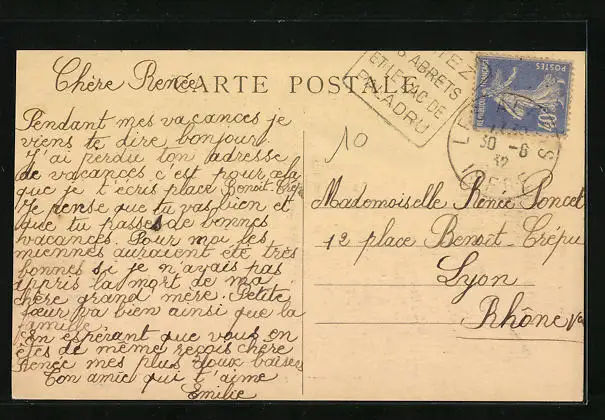 CARTE POSTALE
Chère Renée
Pendant mes vacances je
viens te dire bonjour
J'ai perdu ton adresse
de vacances c'est pour cela
que je t'écris place Benoit-Crépu
Je pense que tu vas bien et
que tu passes de bonnes
vacances. Pour moi les
miennes auraient été très
bonnes si je n'avais pas
appris la mort de ma
chère grand mère. Petite
sœur va bien ainsi que la
famille.
En espérant que vous en
êtes de même reçois chère
Renée mes plus doux baisers
Ton amie qui t'aime
Emilie
ABRETS
ET LE LAC DE
PALADRU
POSTES
40c
30 -8
32
ISERE
10
Mademoiselle Renée Poncet
12 place Benoit-Crépu
Lyon
Rhône